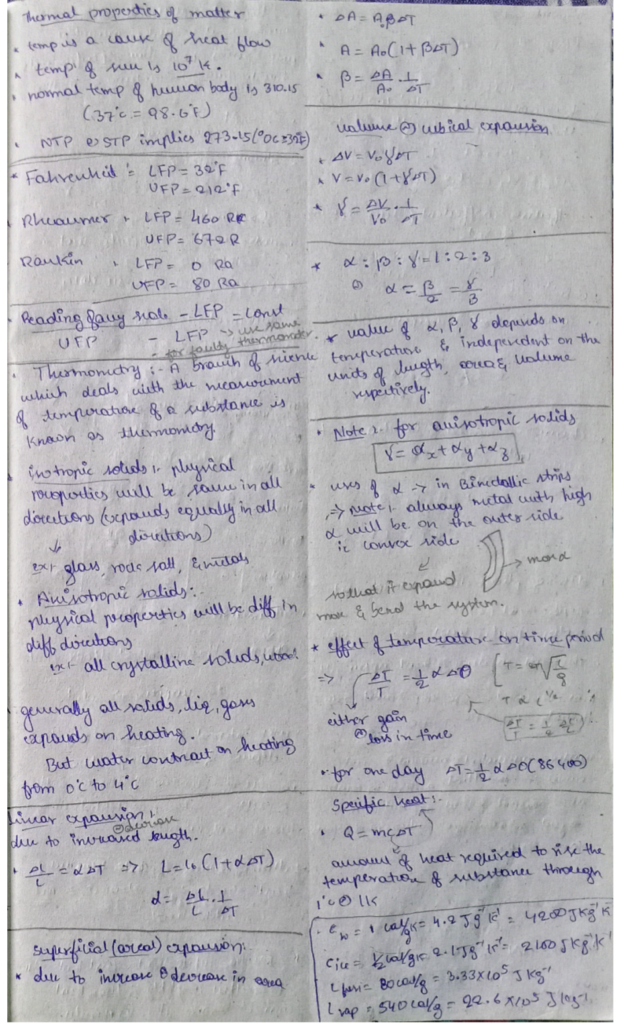 Thermal properties of matter
• temp is a cause of heat flow
• temp of sun is 10⁷ K.
• normal temp of human body is 310.15
(37°C = 98.6°F)
• NTP or STP implies 273.15 (0°C=32°F)
* Fahrenheid : LFP = 32°F
UFP = 212°F
, Rheaumer • LFP = 460 R
UFP = 672 R
Rankin • LFP = 0 Ra
UFP = 80 Ra
• Reading of any scale - LFP = const
UFP - LFP → use same
for faulty thermometer
• Thermometry :- A branch of science
which deals with the measurement
of temperature of a substance is
known as thermometry
• isotropic solids :- physical
properties will be same in all
directions (expands equally in all
directions)
↓
ex:- glass, rock salt, & metals
• Anisotropic solids :-
physical properties will be diff in
diff directions
ex:- all crystalline solids, wood
• generally all solids, liq, gases
expands on heating.
But water contract on heating
from 0°C to 4°C
Linear expansion :
or decrease
due to increased length.
• ΔL/L = α ΔT => L = L₀ (1+αΔT)
α = ΔL/L · 1/ΔT
superficial (areal) expansion :
* due to increase or decrease in area
• ΔA = A₀βΔT
• A = A₀(1+βΔT)
• β = ΔA/A₀ · 1/ΔT
volume or cubical expansion
• ΔV = V₀γΔT
• V = V₀ (1+γΔT)
* γ = ΔV/V₀ · 1/ΔT
* α : β : γ = 1 : 2 : 3
or α = β/2 = γ/3
* value of α, β, γ depends on
temperature & independent on the
units of length, area & volume
respectively.
• Note :- for anisotropic solids
γ = αx + αy + αz
• uses of α -> in Bimetallic strips
-> note :- always metal with high
α will be on the outer side
ie convex side
→ more α
so that it expand
more & bend the system.
* effect of temperature on time period
=> ΔT/T = 1/2 α Δθ [T = 2π√(l/g)
T α l^(1/2)
ΔT/T = 1/2 Δl/l
either gain
or loss in time
• for one day ΔT = 1/2 α Δθ (86400)
Specific heat :-
• Q = mcΔT
amount of heat required to rise the
temperature of substance through
1°C or 1K
• Cw = 1 cal/gK = 4.2 J g⁻¹ K⁻¹ = 4200 J Kg⁻¹ K⁻¹
Cice = 1/2 cal/gK = 2.1 J g⁻¹ K⁻¹ = 2100 J Kg⁻¹ K⁻¹
L fusi = 80 cal/g = 3.33 x 10⁵ J kg⁻¹
L vap = 540 cal/g = 22.6 x 10⁵ J kg⁻¹